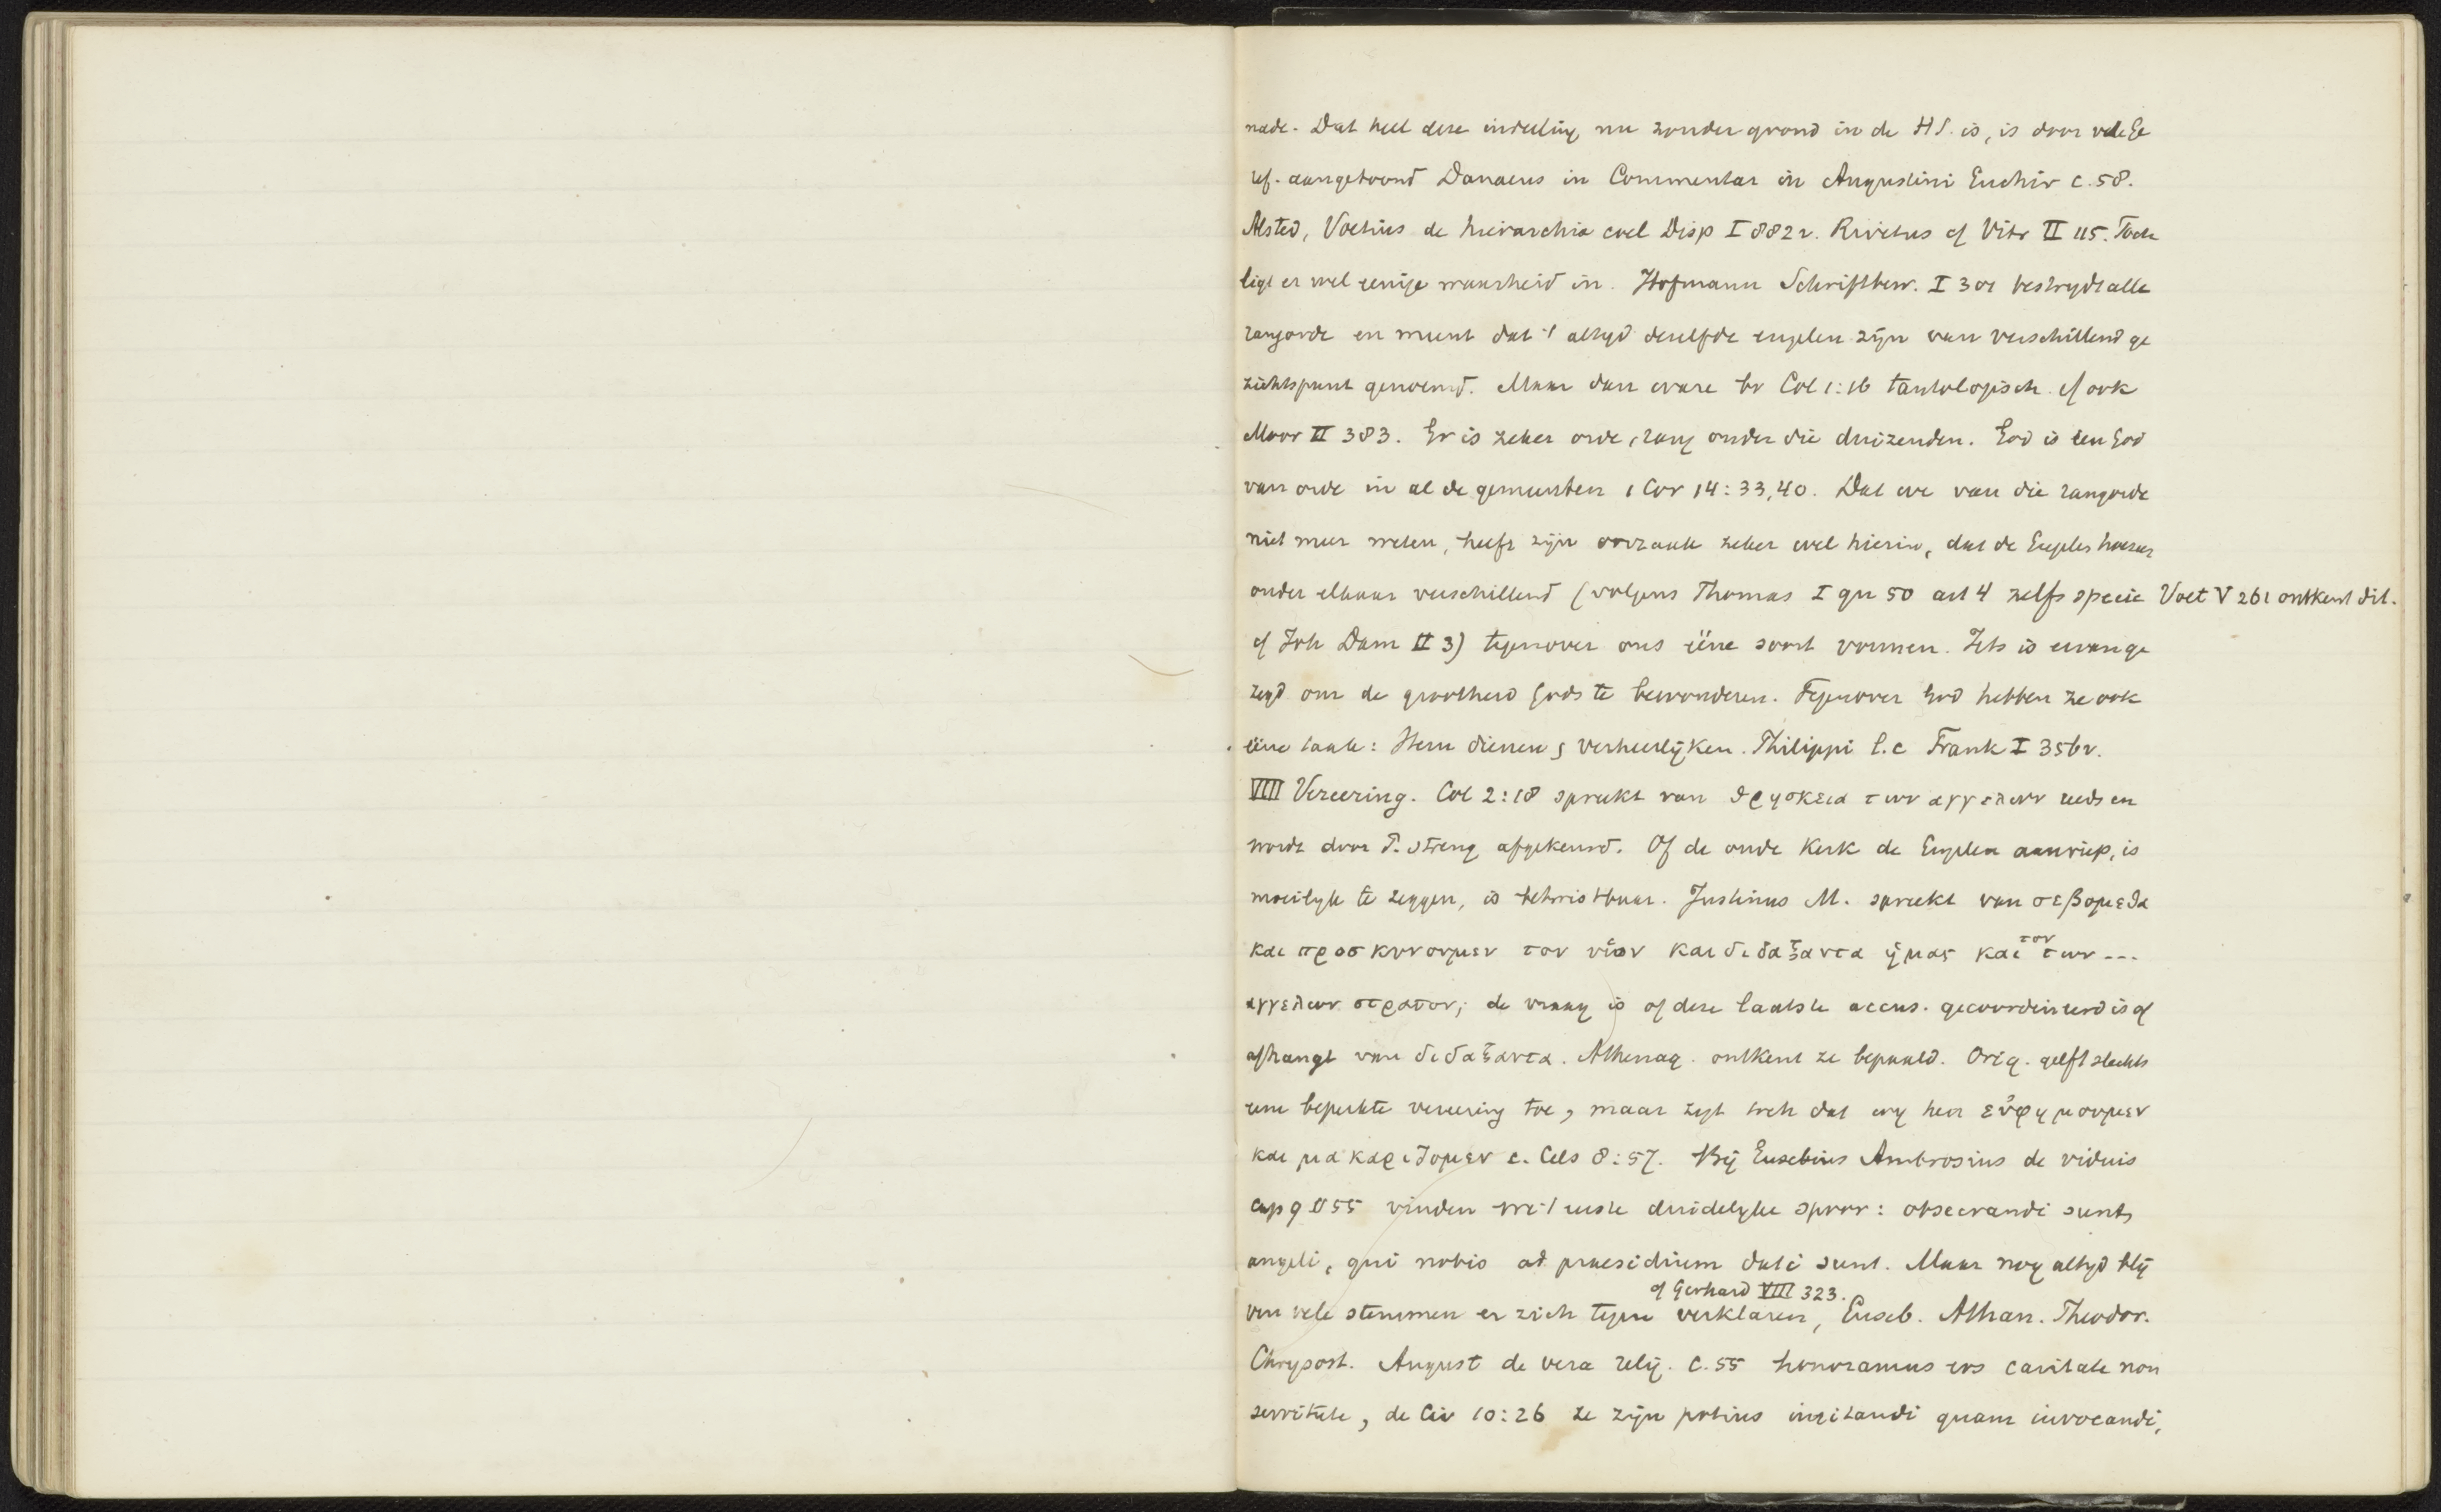 nade. Dat heel deze indeeling nu zonder grond in de HS. is, is door vele Ge
ref. aangetoond Danaeus in Commentar in Augustini Enchir c. 58.
Alsted, Voetius de hierarchia coel Disp I 882v. Rivetus cf Vitr II 115. Toch
ligt er wel eenige waarheid in. Hofmann Schriftbew. I 301 bestrydt alle
rangorde en meent dat 't altyd dezelfde engelen zijn van verschillend ge
zichtspunt genoemd. Maar dan ware bv Col 1:16 tautologisch. cf ook
Moor II 383. Er is zeker orde, rang onder die duizenden. God is een God
van orde in al de gemeenten 1 Cor 14:33,40. Dat we van die rangorde
niet meer weten, heeft zijn oorzaak zeker wel hierin, dat de Engelen hoezeer
onder elkaar verschillend (volgens Thomas I qu 50 art 4 zelfs specie Voet V 261 ontkent dit.
cf Joh Dam II 3) tegenover ons ééne soort vormen. Iets is ervan ge
zegd om de grootheid Gods te bewonderen. Tegenover God hebben ze ook
ééne taak: Hem dienen & verheerlijken. Philippi l.c Frank I 356v.
VIII Vereering. Col 2:18 spreekt van θρησκεια των αγγελων reeds en
wordt door P. streng afgekeurd. Of de oude Kerk de Engelen aanriep, is
moeilyk te zeggen, is betwistbaar. Justinus M. spreekt van σεβομεθα
και προσκυνουμεν τον υἱον και διδαξαντα ἡμας και τον των ---
αγγελων στρατον; de vraag is of deze laatste accus. gecoordineerd is of
afhangt van διδαξαντα. Athenag. ontkent ze bepaald. Orig. geeft slechts
eene beperkte vereering toe, maar zegt toch dat wy hen εὐφημουμεν
και μακαριζομεν c. Cels 8:57. Bij Eusebius Ambrosius de viduis
cap 9 § 55 vinden we 't eerste duidelyke spoor: obsecrandi sunt
angeli, qui nobis ad praesidium dati sunt. Maar nog altyd blij
cf Gerhard VIII 323.
ven vele stemmen er zich tegen verklaren, Euseb. Athan. Theodor.
Chrysost. August de vera relig. c. 55 honoramus eos caritate non
servitute, de Civ 10:26 ze zijn potius imitandi quam invocandi,